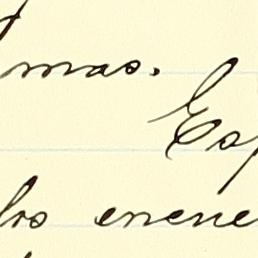 mas.
Esp
los enene